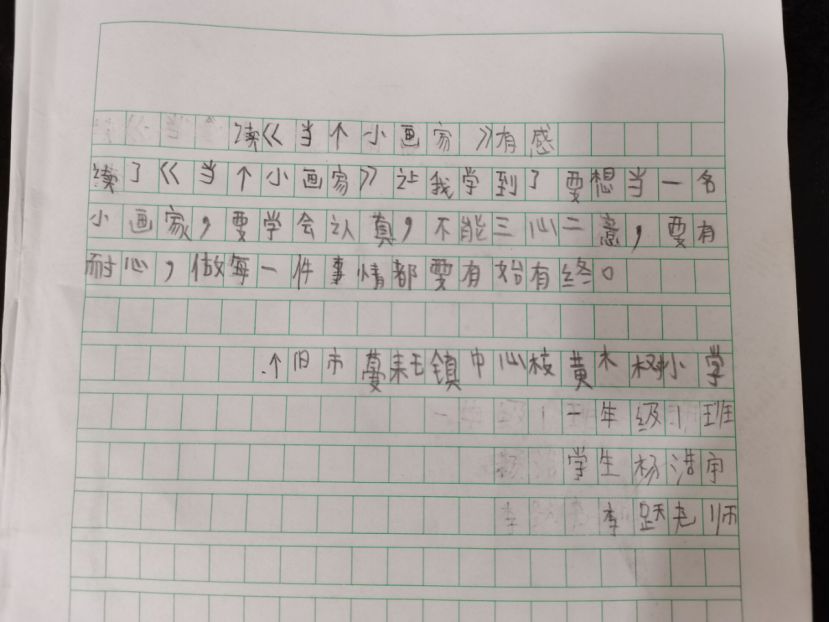 读《当个小画家》有感
读了《当个小画家》让我学到了要想当一名
小画家，要学会认真，不能三心二意，要有
耐心，做每一件事情都要有始有终。
个旧市蔓耗镇中心校黄木树小学
一年级1班
学生杨浩宇
李跃老师